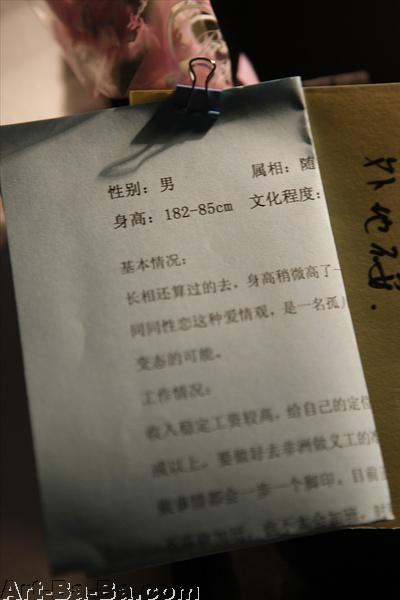 性别：男 属相：随
身高：182-85cm 文化程度：
基本情况：
长相还算过的去，身高稍微高了一
同同性恋这种爱情观，是一名孤儿
变态的可能。
工作情况：
收入稳定工资较高，给自己的定位
或以上。要做好去非洲做义工的准
做事情都会一步一个脚印。目前
也不太会加班，时
外地
Art-Ba-Ba.com